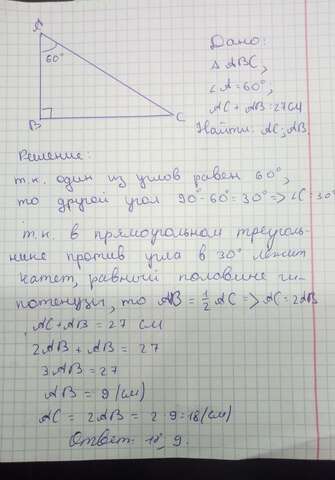 A
60°
B
C
Дано:
△ABC,
∠A=60°,
AC + AB = 27см
Найти: AC; AB.
Решение:
т.к. один из углов равен 60°,
то другой угол 90°-60°=30°=>∠C=30°
т.к. в прямоугольном треуголь-
нике против угла в 30° лежит
катет, равный половине ги-
потенузы, то AB = 1/2 AC => AC = 2AB
AC+AB = 27 см
2AB + AB = 27
3AB = 27
AB = 9 (см)
AC = 2AB = 2·9=18(см)
Ответ: 18, 9.